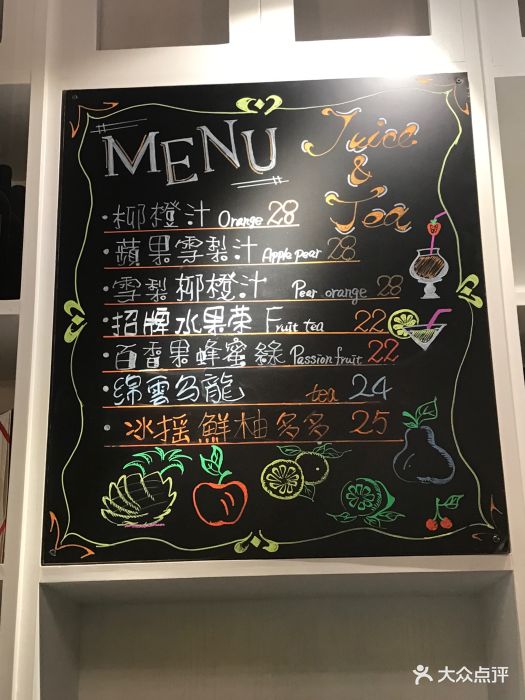 MENU Juice & Tea
·椰橙汁 Orange 28
·蘋果雪梨汁 Apple pear 28
·雪梨椰橙汁 Pear orange 28
·招牌水果茶 Fruit tea 22
·百香果蜂蜜綠 Passion fruit 22
·绵雲乌龍 tea 24
·冰摇鮮柚多多 25
大众点评